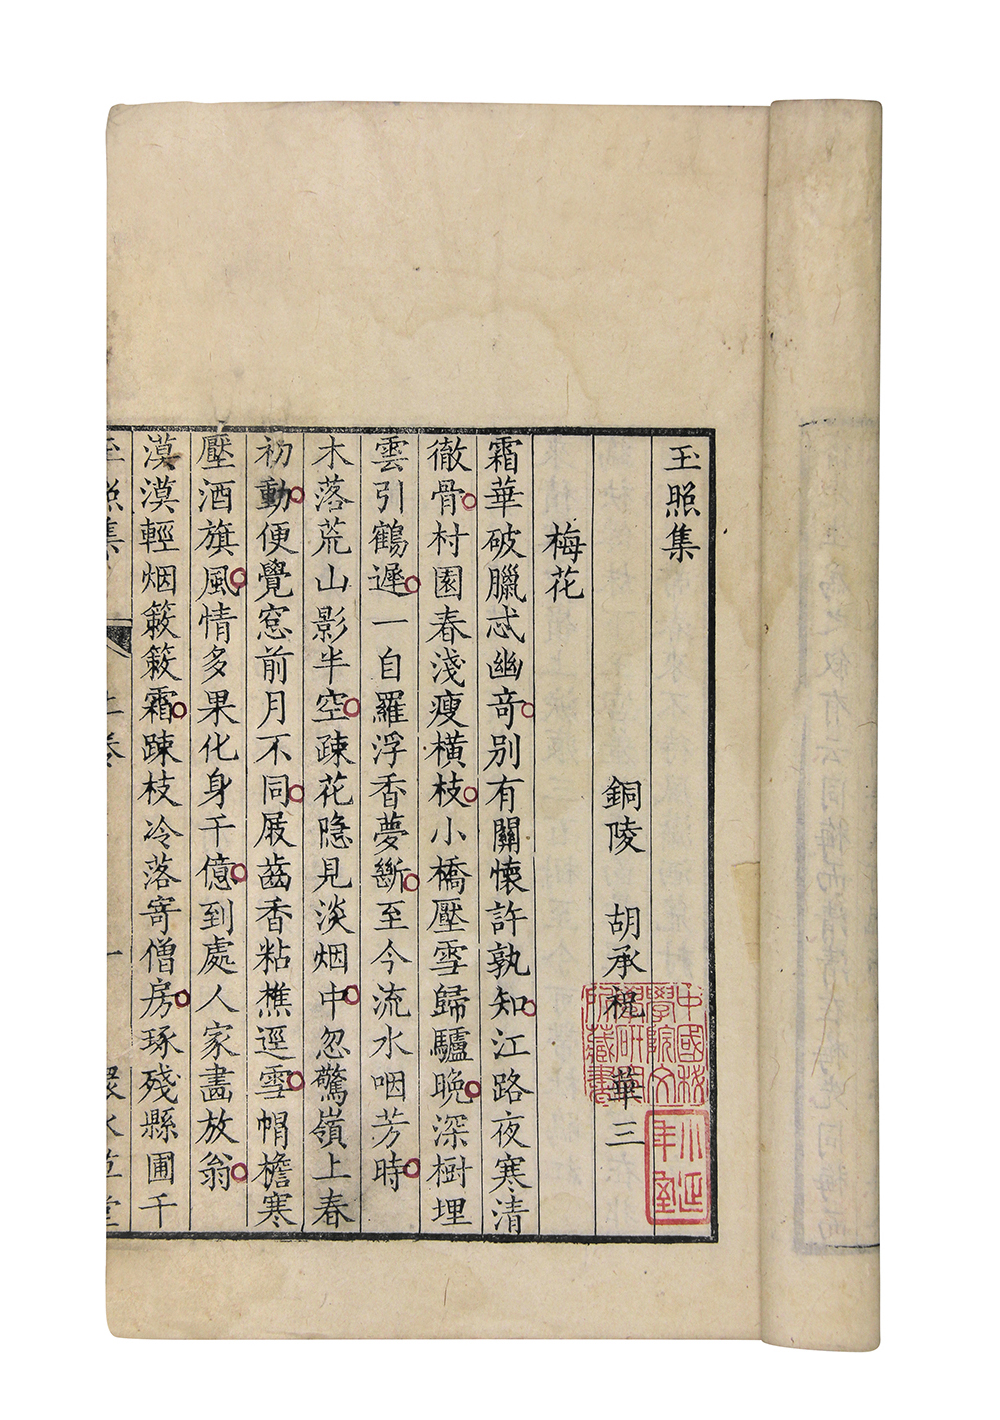 玉照集
銅陵　胡承祝　華三
梅花
霜華破臘忒幽奇別有關懷許孰知江路夜寒清
徹骨村園春淺瘦橫枝小橋壓雪歸驢晚深樹埋
雲引鶴遲一自羅浮香夢斷至今流水咽芳時
木落荒山影半空踈花隱見淡烟中忽驚嶺上春
初動便覺窓前月不同屐齒香粘樵逕雪帽檐寒
壓酒旗風情多果化身千億到處人家畵放翁
漠漠輕烟簌簌霜踈枝冷落寄僧房琢殘縣圃千
玉照集　上卷　一
中國科學院文學研究所藏書